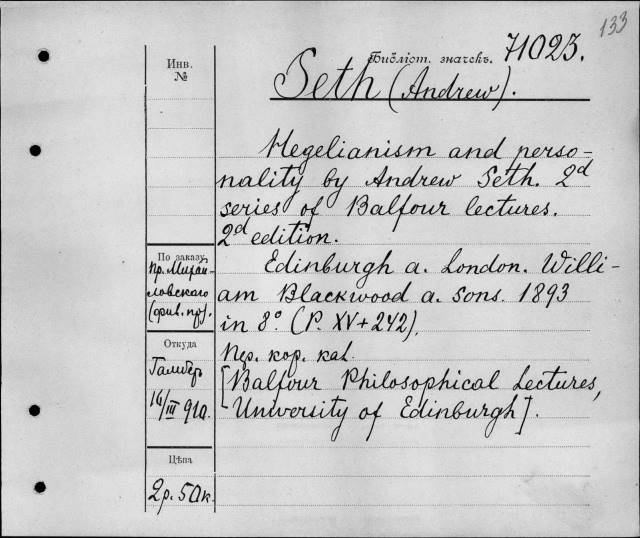 133
Библіот. значекъ. 71023.
Инв.
№
Seth (Andrew).
Hegelianism and perso-
nality by Andrew Seth. 2d
series of Balfour lectures.
2d edition.
По заказу
пр. Михай-
ловскаго
(фив. пр).
Edinburgh a. London. Willi-
am Blackwood a. sons. 1893
in 8° (P. XV+242).
Откуда
16/III 910.
Пер. кор. kal.
[Balfour Philosophical Lectures,
University of Edinburgh].
Цѣна
2р. 50к.